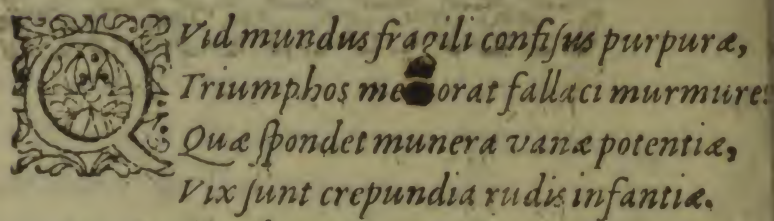 QVid mundus fragili confiſus purpuræ,
Triumphos memorat fallaci murmure?
Quæ ſpondet munera vanæ potentiæ,
Vix ſunt crepundia rudis infantiæ.